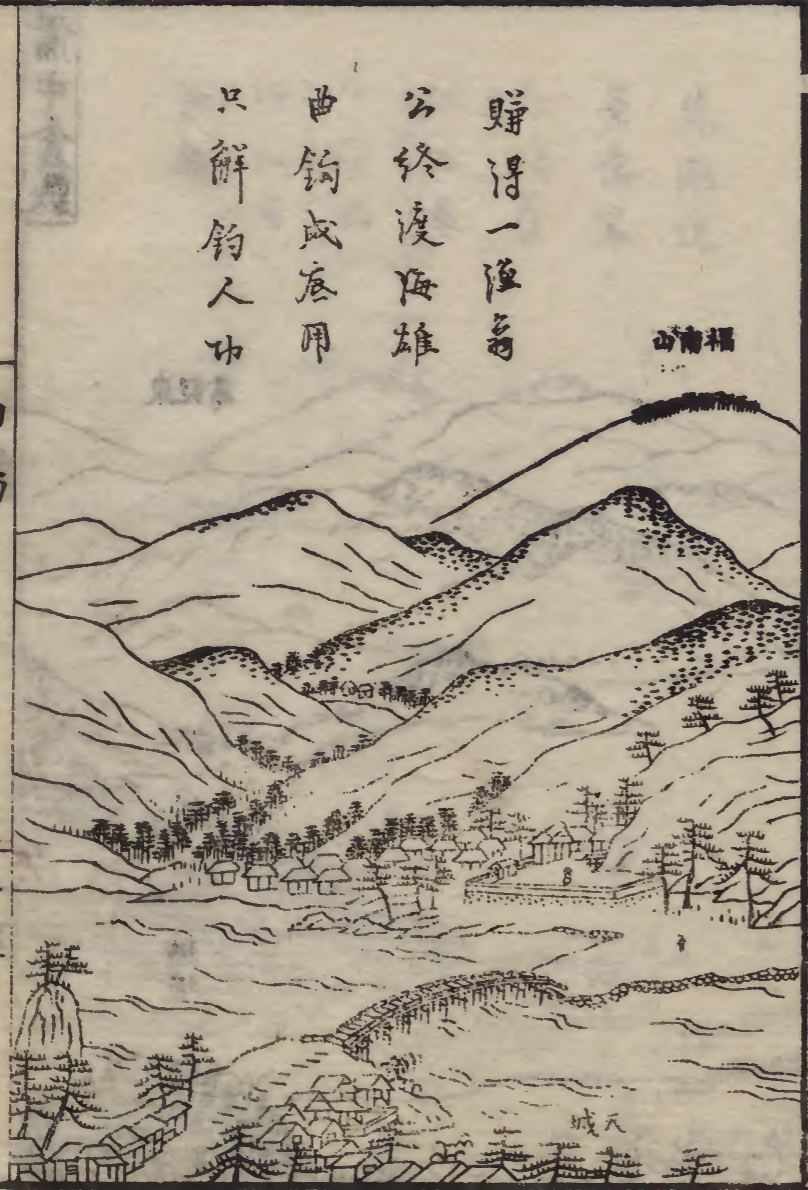 賺得一漁翁
公終渡海雄
曲鈎成底用
只解釣人功
福南山
天城